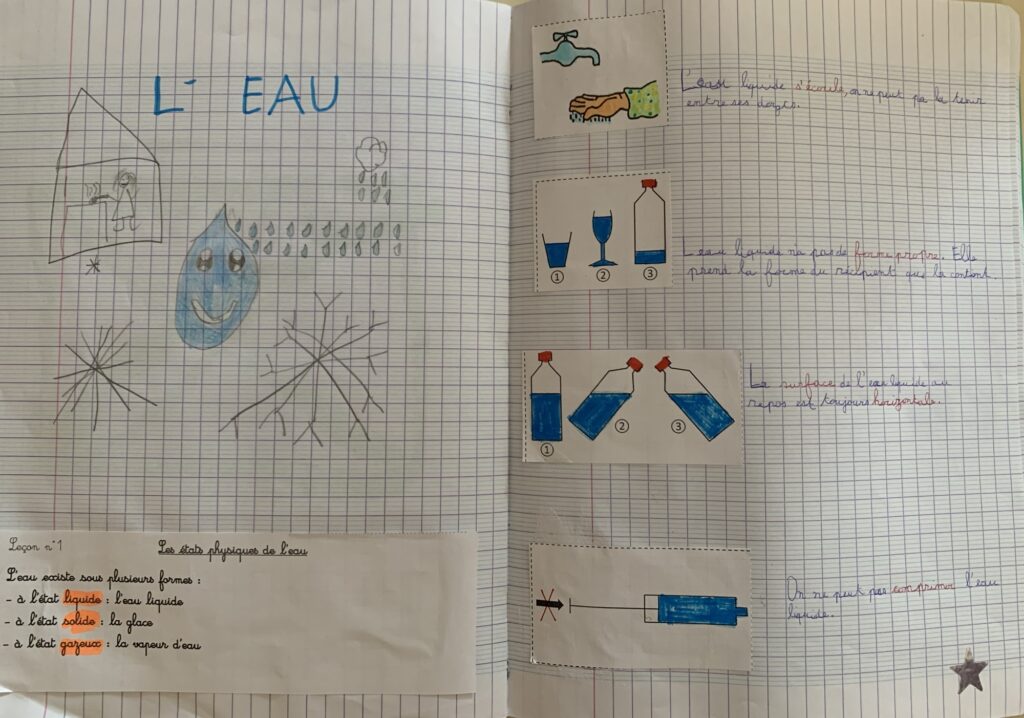 L' EAU
Leçon n°1
Les états physiques de l'eau
L'eau existe sous plusieurs formes :
- à l'état liquide : l'eau liquide
- à l'état solide : la glace
- à l'état gazeux : la vapeur d'eau
L'eau liquide s'écoule, on ne peut pas la tenir
entre ses doigts.
① ② ③
L'eau liquide n'a pas de forme propre. Elle
prend la forme du récipient qui la contient.
① ② ③
La surface de l'eau liquide au
repos est toujours horizontale.
On ne peut pas comprimer l'eau
liquide.